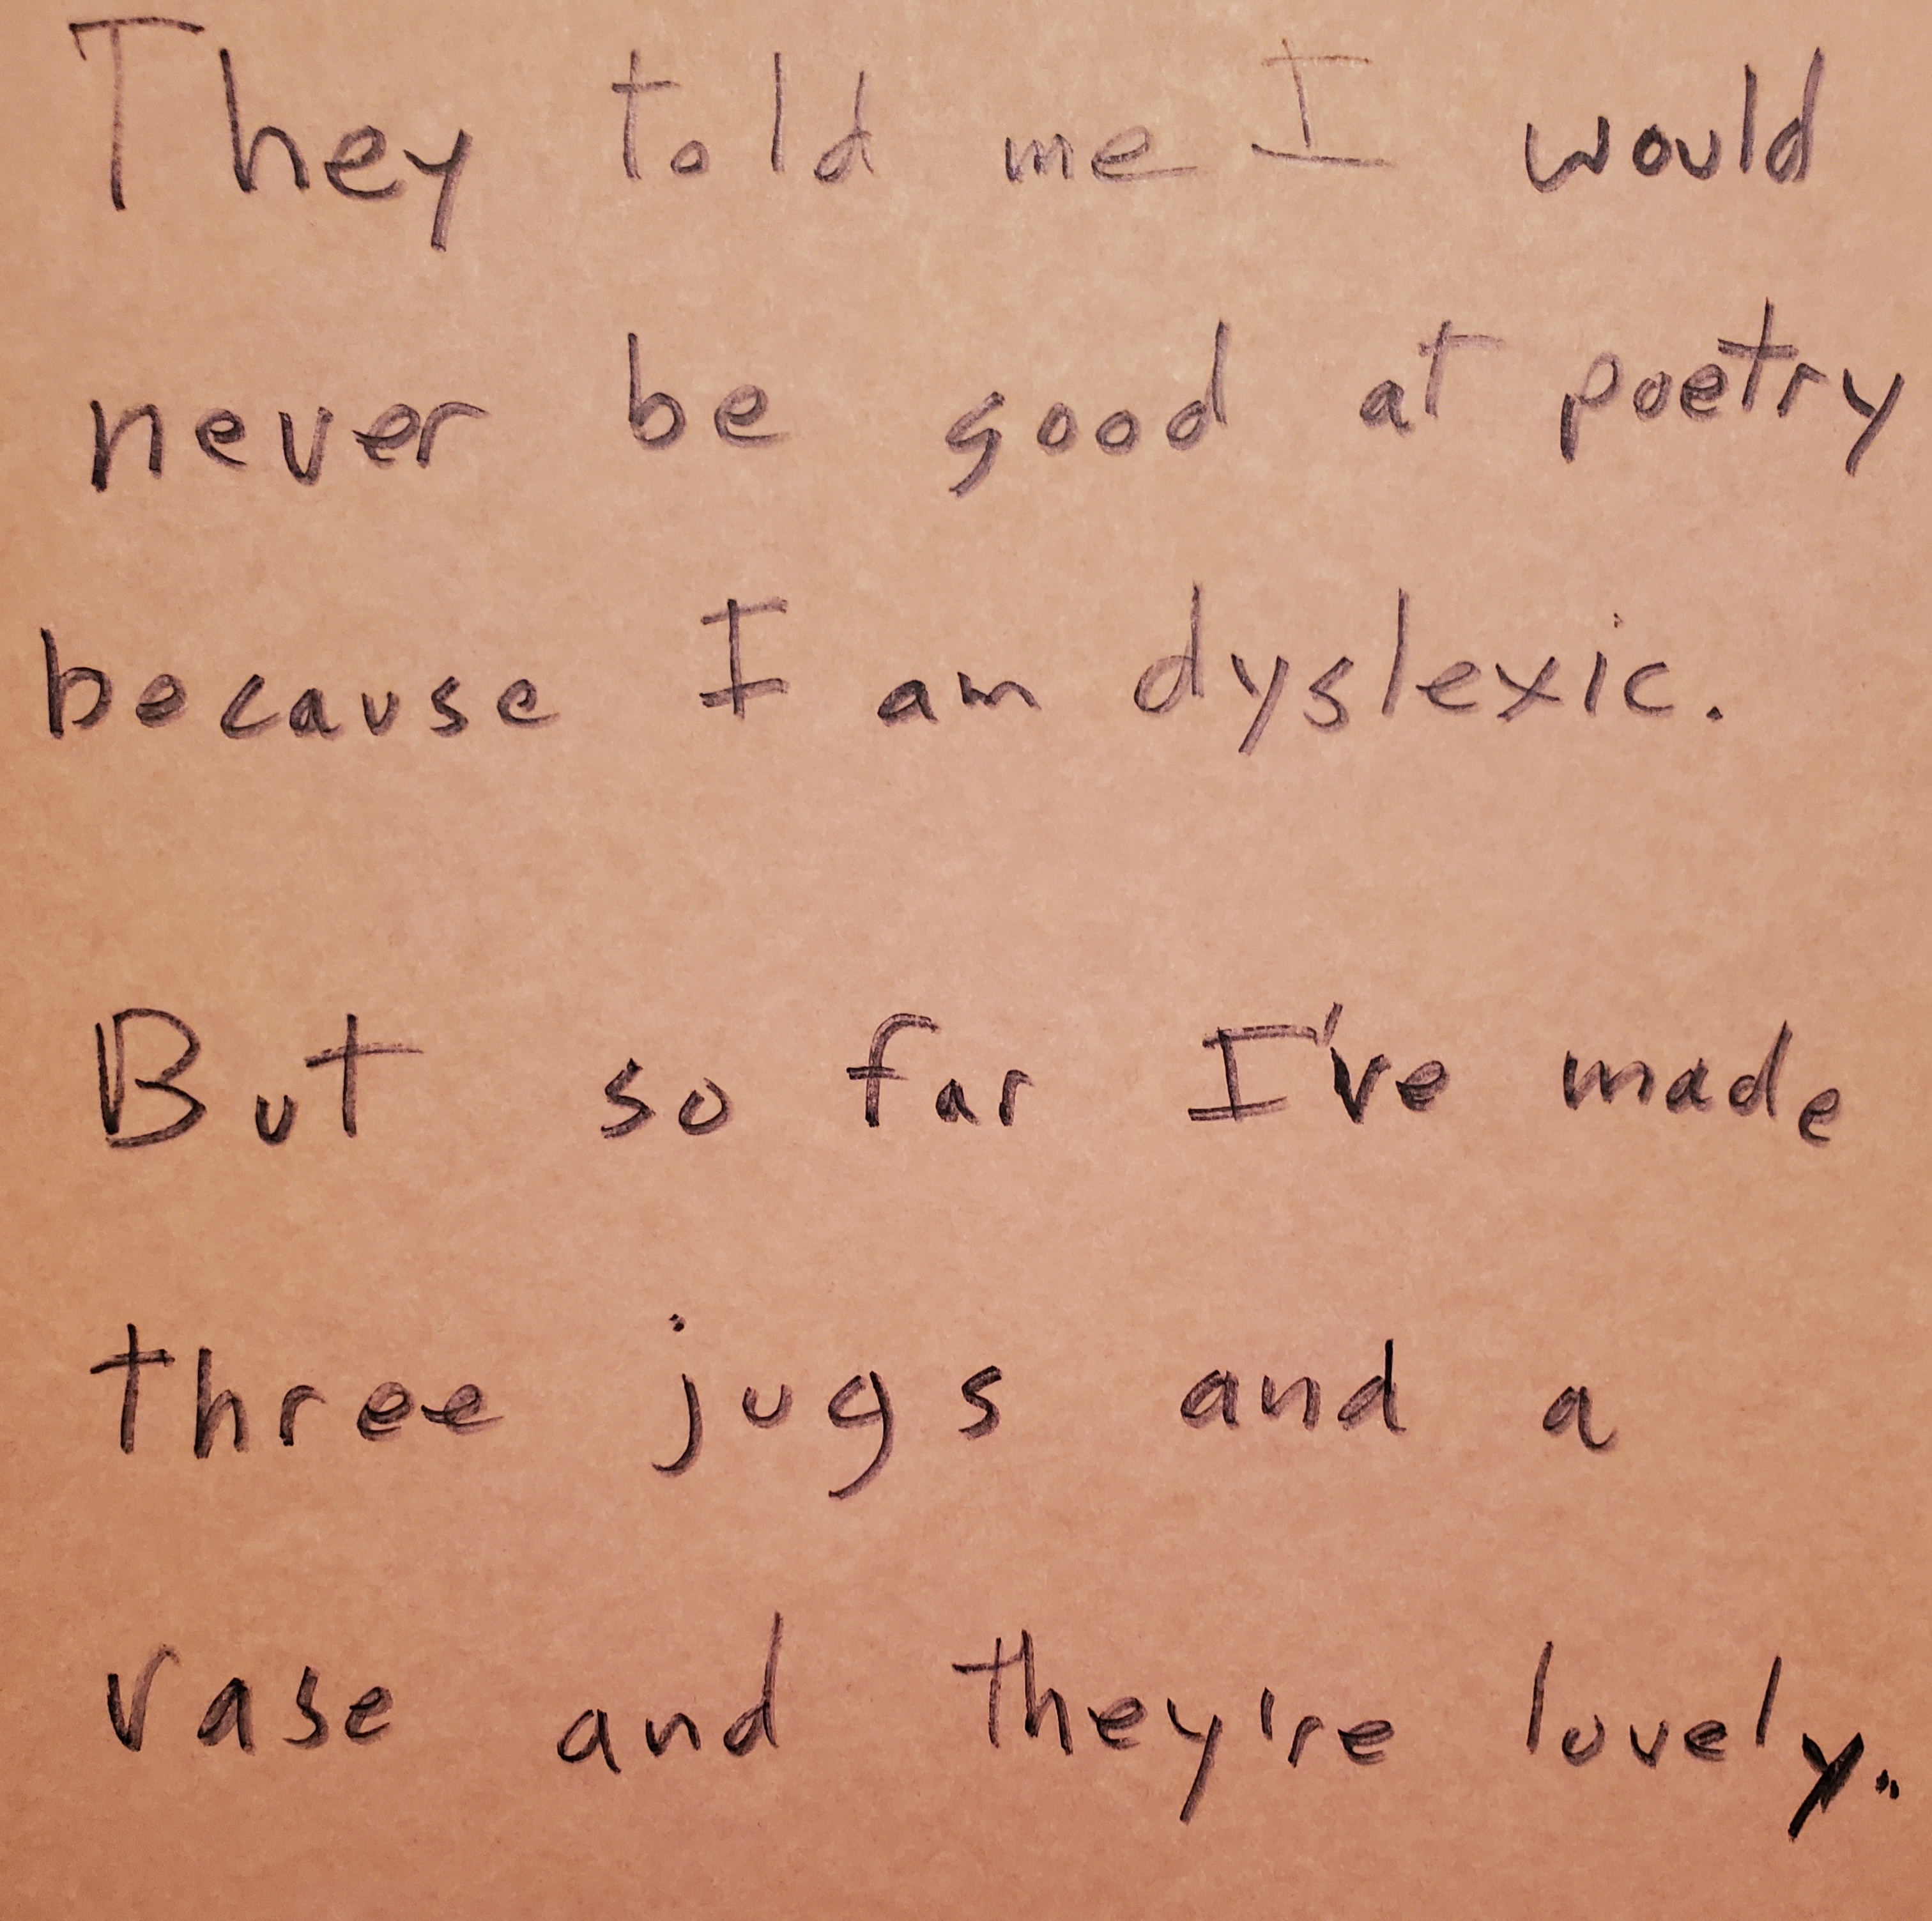 They told me I would
never be good at poetry
because I am dyslexic.
But so far I've made
three jugs and a
vase and they're lovely.